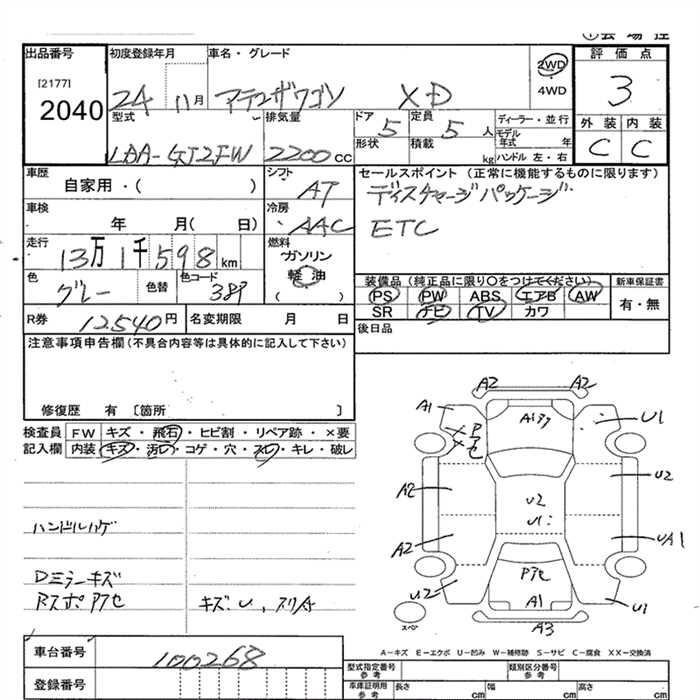 ①会場控
出品番号 初度登録年月 車名・グレード 2WD 4WD 評価点
[2177]
2040 24 11月 アテンザワゴン XD 3
型式 排気量 ドア 定員 ディーラー・並行 外装 内装
LDA-GJ2FW 2200cc 5 5人 モデル年式 年 C C
形状 積載 kg ハンドル 左・右
車歴 シフト セールスポイント (正常に機能するものに限ります)
自家用・( ) AT ディスチャージパッケージ
車検 冷房 ETC
年 月( 日) AAC
走行 燃料
13万1千598km ガソリン
色 色替 色コード 軽油 装備品 (純正品に限り○をつけてください) 新車保証書
グレー 389 ( ) PS PW ABS エアB AW 有・無
SR ナビ TV カワ
R券 12540円 名変期限 月 日 後日品
注意事項申告欄(不具合内容等は具体的に記入して下さい)
修復歴 有 〔箇所 〕
検査員 FW キズ・飛石・ヒビ割・リペア跡・×要
記入欄 内装 キズ・汚レ・コゲ・穴・スレ・キレ・破レ
A2 A2
A1 U1
A2 U2
U2
A2 UA1
U2 A1 U1
A3
スペア
ハンドルハゲ
Dミラーキズ
キズ.U.スリキ
A-キズ E-エクボ U-凹み W-補修跡 S-サビ C-腐食 XX-交換済
車台番号 100268
型式指定番号 参考 類別区分番号 参考
登録番号 車庫証明用 参考 長さ cm 幅 cm 高さ cm